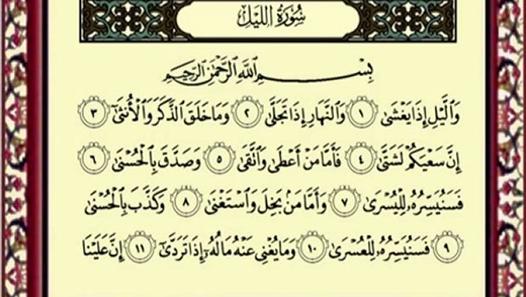 سُورَةُ اللَّيْلِ
بِسْمِ اللَّهِ الرَّحْمَٰنِ الرَّحِيمِ
وَالَّيْلِ إِذَا يَغْشَىٰ ١ وَالنَّهَارِ إِذَا تَجَلَّىٰ ٢ وَمَا خَلَقَ الذَّكَرَ وَالْأُنثَىٰ ٣
إِنَّ سَعْيَكُمْ لَشَتَّىٰ ٤ فَأَمَّا مَنْ أَعْطَىٰ وَاتَّقَىٰ ٥ وَصَدَّقَ بِالْحُسْنَىٰ ٦
فَسَنُيَسِّرُهُ لِلْيُسْرَىٰ ٧ وَأَمَّا مَنْ بَخِلَ وَاسْتَغْنَىٰ ٨ وَكَذَّبَ بِالْحُسْنَىٰ
٩ فَسَنُيَسِّرُهُ لِلْعُسْرَىٰ ١٠ وَمَا يُغْنِي عَنْهُ مَالُهُ إِذَا تَرَدَّىٰ ١١ إِنَّ عَلَيْنَا